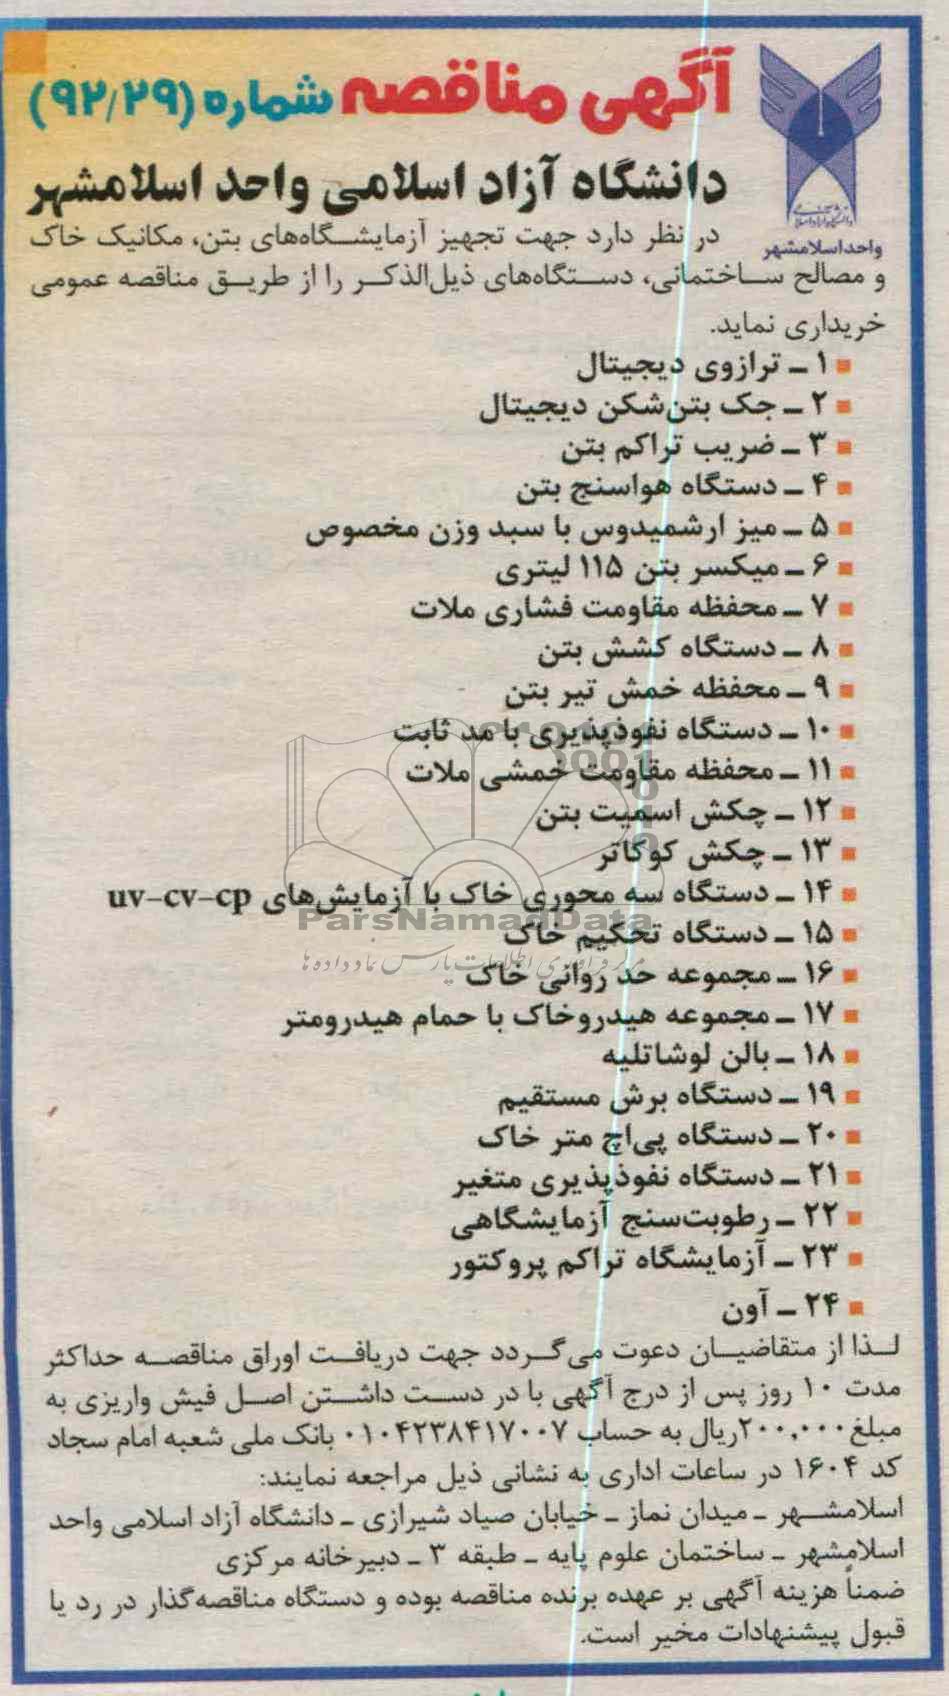 آگهی مناقصه شماره (۹۲/۲۹)
دانشگاه آزاد اسلامی واحد اسلامشهر
واحد اسلامشهر
در نظر دارد جهت تجهیز آزمایشگاه‌های بتن، مکانیک خاک
و مصالح ساختمانی، دستگاه‌های ذیل‌الذکر را از طریق مناقصه عمومی
خریداری نماید.
۱ ـ ترازوی دیجیتال
۲ ـ جک بتن‌شکن دیجیتال
۳ ـ ضریب تراکم بتن
۴ ـ دستگاه هواسنج بتن
۵ ـ میز ارشمیدوس با سبد وزن مخصوص
۶ ـ میکسر بتن ۱۱۵ لیتری
۷ ـ محفظه مقاومت فشاری ملات
۸ ـ دستگاه کشش بتن
۹ ـ محفظه خمش تیر بتن
۱۰ ـ دستگاه نفوذپذیری با مد ثابت
۱۱ ـ محفظه مقاومت خمشی ملات
۱۲ ـ چکش اسمیت بتن
۱۳ ـ چکش کوکاتر
۱۴ ـ دستگاه سه محوری خاک با آزمایش‌های uv-cv-cp
ParsNamadData
۱۵ ـ دستگاه تحکیم خاک
مرکز فرآوری اطلاعات پارس نماد داده ها
۱۶ ـ مجموعه حد روانی خاک
۱۷ ـ مجموعه هیدروخاک با حمام هیدرومتر
۱۸ ـ بالن لوشاتلیه
۱۹ ـ دستگاه برش مستقیم
۲۰ ـ دستگاه پی‌اچ متر خاک
۲۱ ـ دستگاه نفوذپذیری متغیر
۲۲ ـ رطوبت‌سنج آزمایشگاهی
۲۳ ـ آزمایشگاه تراکم پروکتور
۲۴ ـ آون
لذا از متقاضیان دعوت می‌گردد جهت دریافت اوراق مناقصه حداکثر
مدت ۱۰ روز پس از درج آگهی با در دست داشتن اصل فیش واریزی به
مبلغ ۲۰۰,۰۰۰ریال به حساب ۰۱۰۴۲۳۸۴۱۷۰۰۷ بانک ملی شعبه امام سجاد
کد ۱۶۰۴ در ساعات اداری به نشانی ذیل مراجعه نمایند:
اسلامشهر ـ میدان نماز ـ خیابان صیاد شیرازی ـ دانشگاه آزاد اسلامی واحد
اسلامشهر ـ ساختمان علوم پایه ـ طبقه ۳ ـ دبیرخانه مرکزی
ضمناً هزینه آگهی بر عهده برنده مناقصه بوده و دستگاه مناقصه‌گذار در رد یا
قبول پیشنهادات مخیر است.